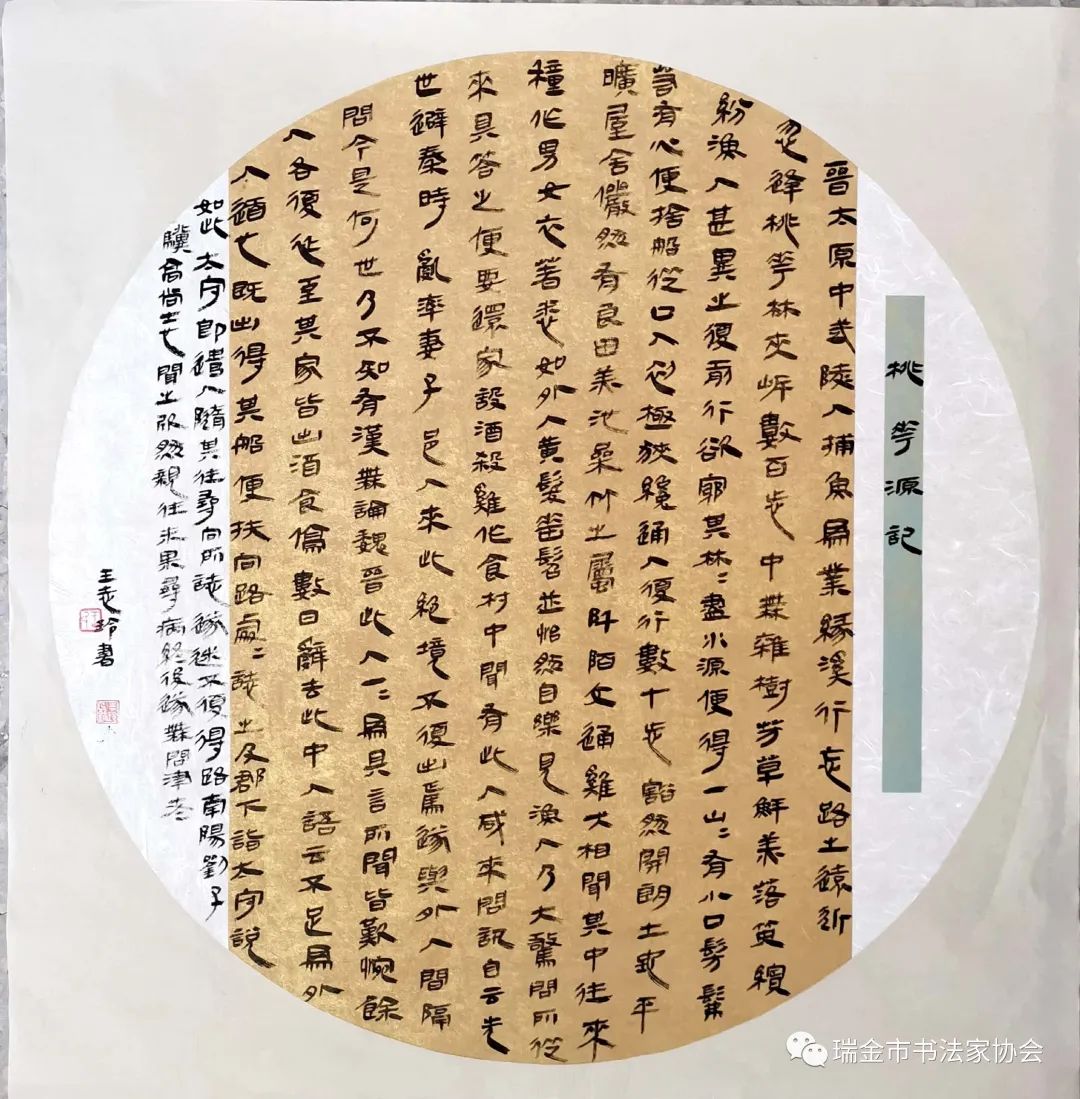 桃花源記
晉太原中武陵人捕魚為業緣溪行忘路之遠近
忽逢桃花林夾岸數百步中無雜樹芳草鮮美落英繽
紛漁人甚異之復前行欲窮其林〻盡水源便得一山〻有小口髣髴
若有光便捨船從口入初極狹纔通人復行數十步豁然開朗土地平
曠屋舍儼然有良田美池桑竹之屬阡陌交通雞犬相聞其中往來
種作男女衣著悉如外人黃髮垂髫並怡然自樂見漁人乃大驚問所從
來具答之便要還家設酒殺雞作食村中聞有此人咸來問訊自云先
世避秦時亂率妻子邑人來此絕境不復出焉遂與外人間隔
問今是何世乃不知有漢無論魏晉此人一〻為具言所聞皆歎惋餘
人各復延至其家皆出酒食停數日辭去此中人語云不足為外
人道也既出得其船便扶向路處〻誌之及郡下詣太守說
如此太守即遣人隨其往尋向所誌遂迷不復得路南陽劉子
驥高尚士也聞之欣然親往未果尋病終後遂無問津者
王志玲書
瑞金市书法家协会